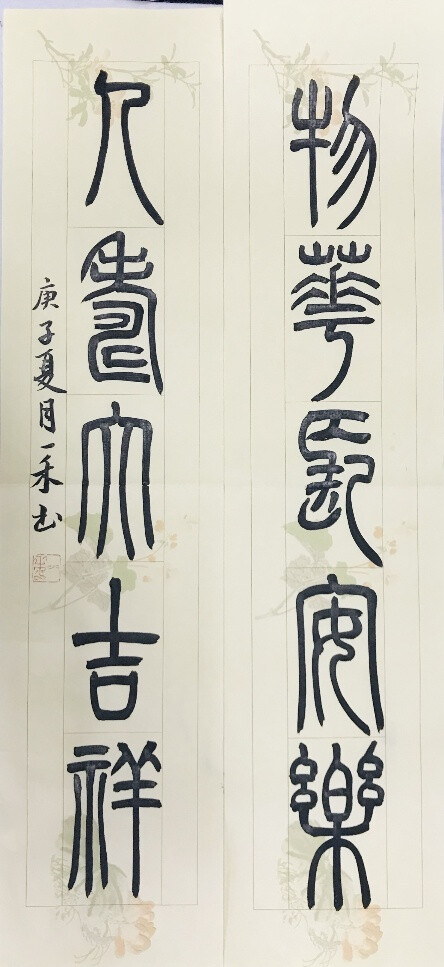 物華長安樂
人壽大吉祥
庚子夏月一禾书